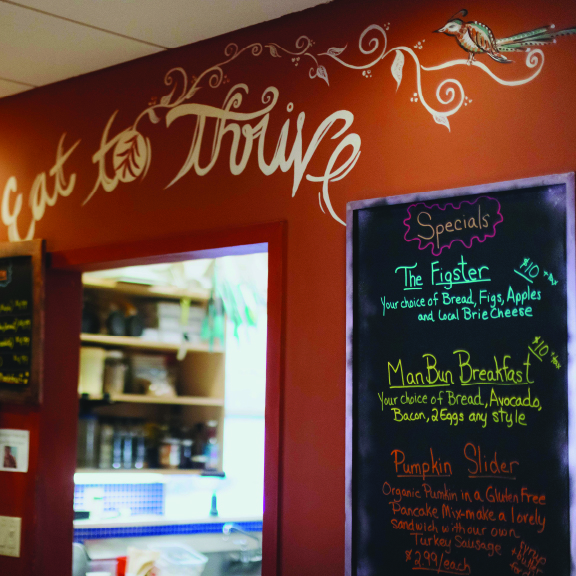 Eat to Thrive
Specials
The Figster
$10 + tax
Your choice of Bread, Figs, Apples
and Local Brie Cheese
$10 + tax
Man Bun Breakfast
Your choice of Bread, Avocado,
Bacon, 2 Eggs any style
Pumpkin Slider
Organic Pumkin in a Gluten Free
Pancake Mix-make a lovely
sandwich with our own
Turkey Sausage
$2.99/each
Syrup
+ Butter